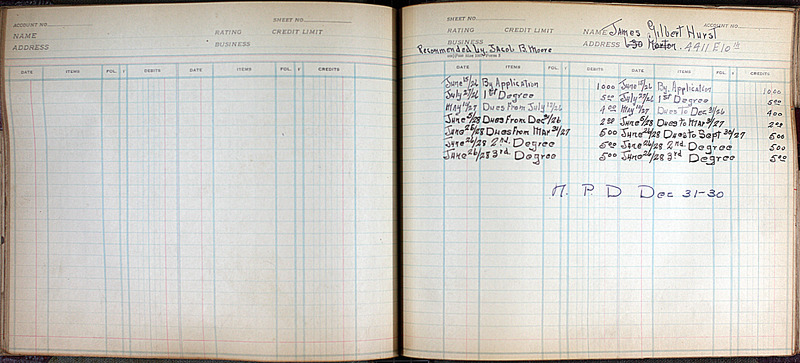 SHEET NO.
ACCOUNT NO.
NAME RATING CREDIT LIMIT
ADDRESS BUSINESS
DATE ITEMS FOL. DEBITS DATE ITEMS FOL. CREDITS
SHEET NO.
ACCOUNT NO.
RATING CREDIT LIMIT NAME James Gilbert Hurst
BUSINESS ADDRESS 630 Morton 4411 E 10 th
Recommended by Jacob B. Moore
DATE ITEMS DEBITS DATE ITEMS FOL. CREDITS
June 15/26 By Application 10 00 June 15/26 By Application 10 00
July 27/26 1st Degree 5 00 July 27/26 1st Degree 5 00
May 12/27 Dues From July 12/26 4 00 May 12/27 Dues To Dec 31/26 4 00
June 5/28 Dues From Dec 31/26 2 00 June 5/28 Dues to Mar 31/27 2 00
June 26/28 Dues From Mar 31/27 5 00 June 26/28 Dues to Sept 30/27 5 00
June 26/28 2nd. Degree 5 00 June 26/28 2nd. Degree 5 00
June 26/28 3rd. Degree 5 00 June 26/28 3rd Degree 5 00
N. P. D Dec 31-30